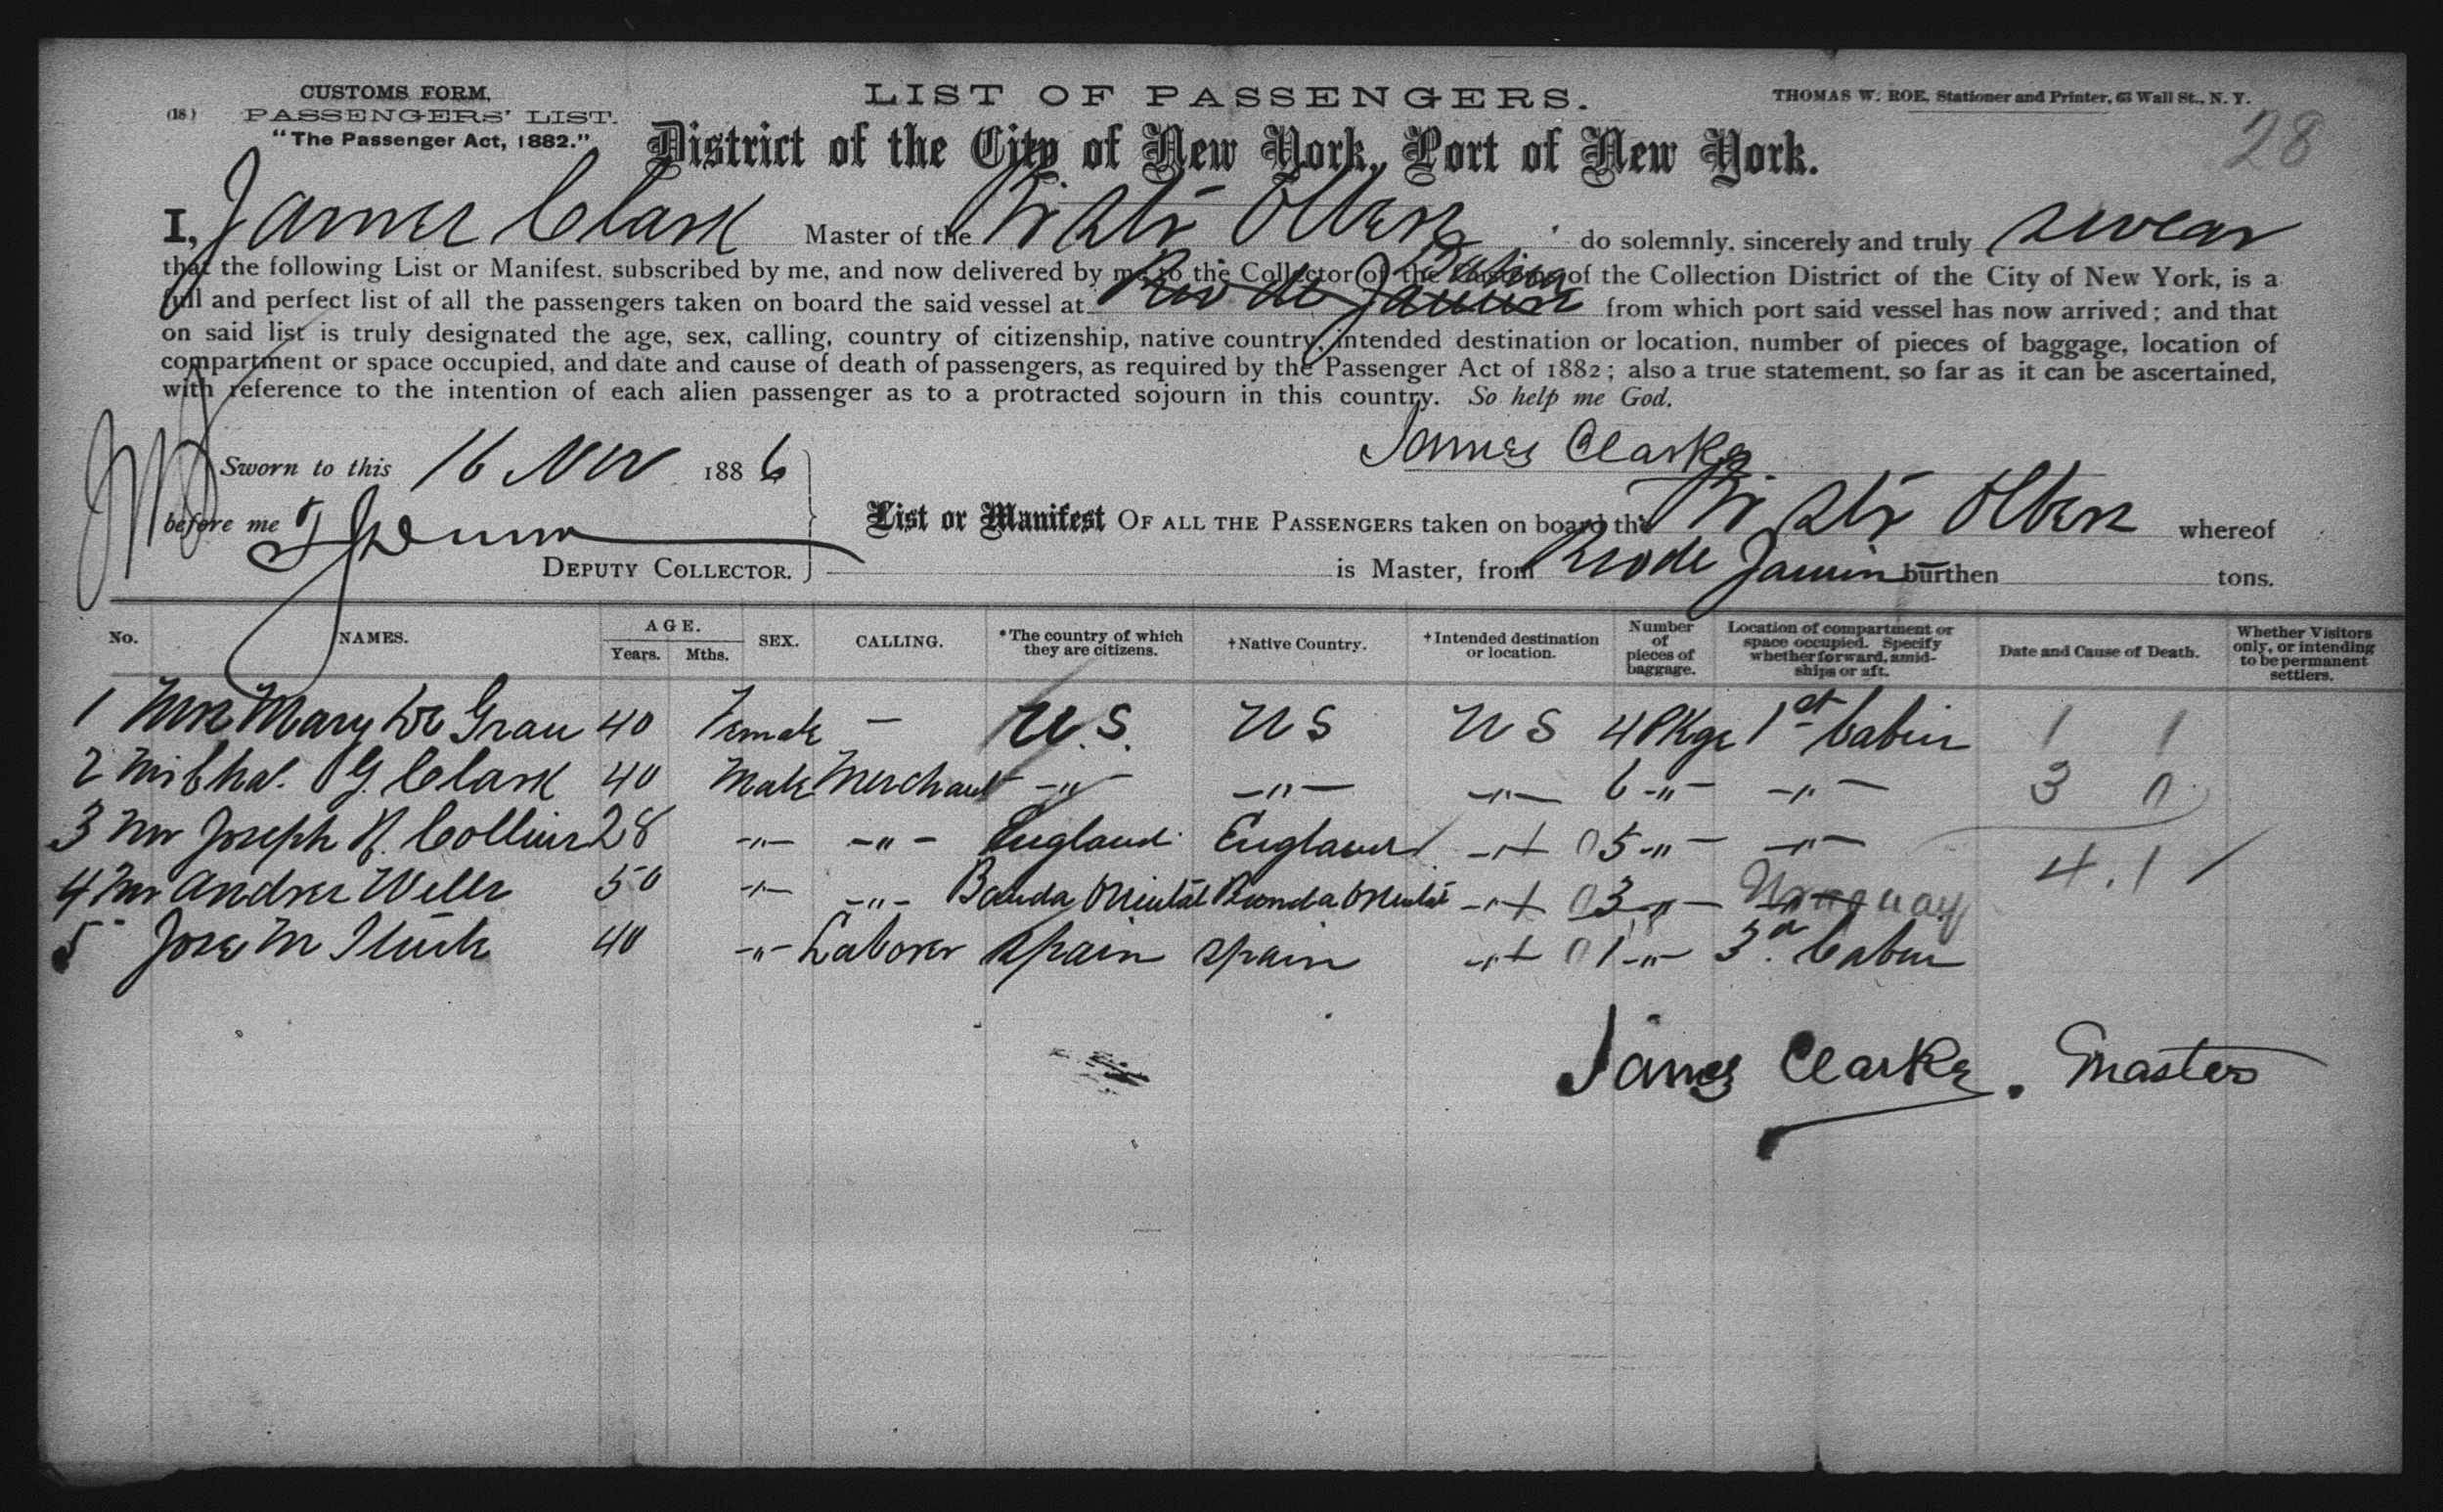 CUSTOMS FORM.
(18) PASSENGERS' LIST.
"The Passenger Act, 1882."
LIST OF PASSENGERS.
THOMAS W. ROE, Stationer and Printer, 63 Wall St., N. Y.
28
District of the City of New York, Port of New York.
I, James Clark Master of the Br Str Olbers do solemnly, sincerely and truly swear
that the following List or Manifest, subscribed by me, and now delivered by me to the Collector of the Customs of the Collection District of the City of New York, is a
full and perfect list of all the passengers taken on board the said vessel at Rio de Janeiro from which port said vessel has now arrived; and that
on said list is truly designated the age, sex, calling, country of citizenship, native country, intended destination or location, number of pieces of baggage, location of
compartment or space occupied, and date and cause of death of passengers, as required by the Passenger Act of 1882; also a true statement, so far as it can be ascertained,
with reference to the intention of each alien passenger as to a protracted sojourn in this country. So help me God.
James Clarke
Sworn to this 16 Nov 1886
before me
DEPUTY COLLECTOR.
List or Manifest OF ALL THE PASSENGERS taken on board the Br Str Olbers whereof
is Master, from Rio de Janeiro burthen tons.
No. NAMES. AGE. Years. Mths. SEX. CALLING. *The country of which they are citizens. †Native Country. †Intended destination or location. Number of pieces of baggage. Location of compartment or space occupied. Specify whether forward, amidships or aft. Date and Cause of Death. Whether Visitors only, or intending to be permanent settlers.
1 Mrs Mary De Grau 40 Female — U.S. U S U S 4 Pkgs 1st Cabin 1 1
2 Mr Chas. G. Clark 40 Male Merchant -"- -"- -"- 6 -"- -"- 3 0
3 Mr Joseph H. Collins 28 -"- -"- England England -"- 0 5 -"- -"-
4 Mr Andres Wells 50 -"- -"- Banda Oriental Banda Oriental -"- 0 3 -"- Uruguay 4.1
5 Jose M 40 -"- Laborer Spain Spain -"- 0 1 -"- 3d Cabin
James Clarke. Master